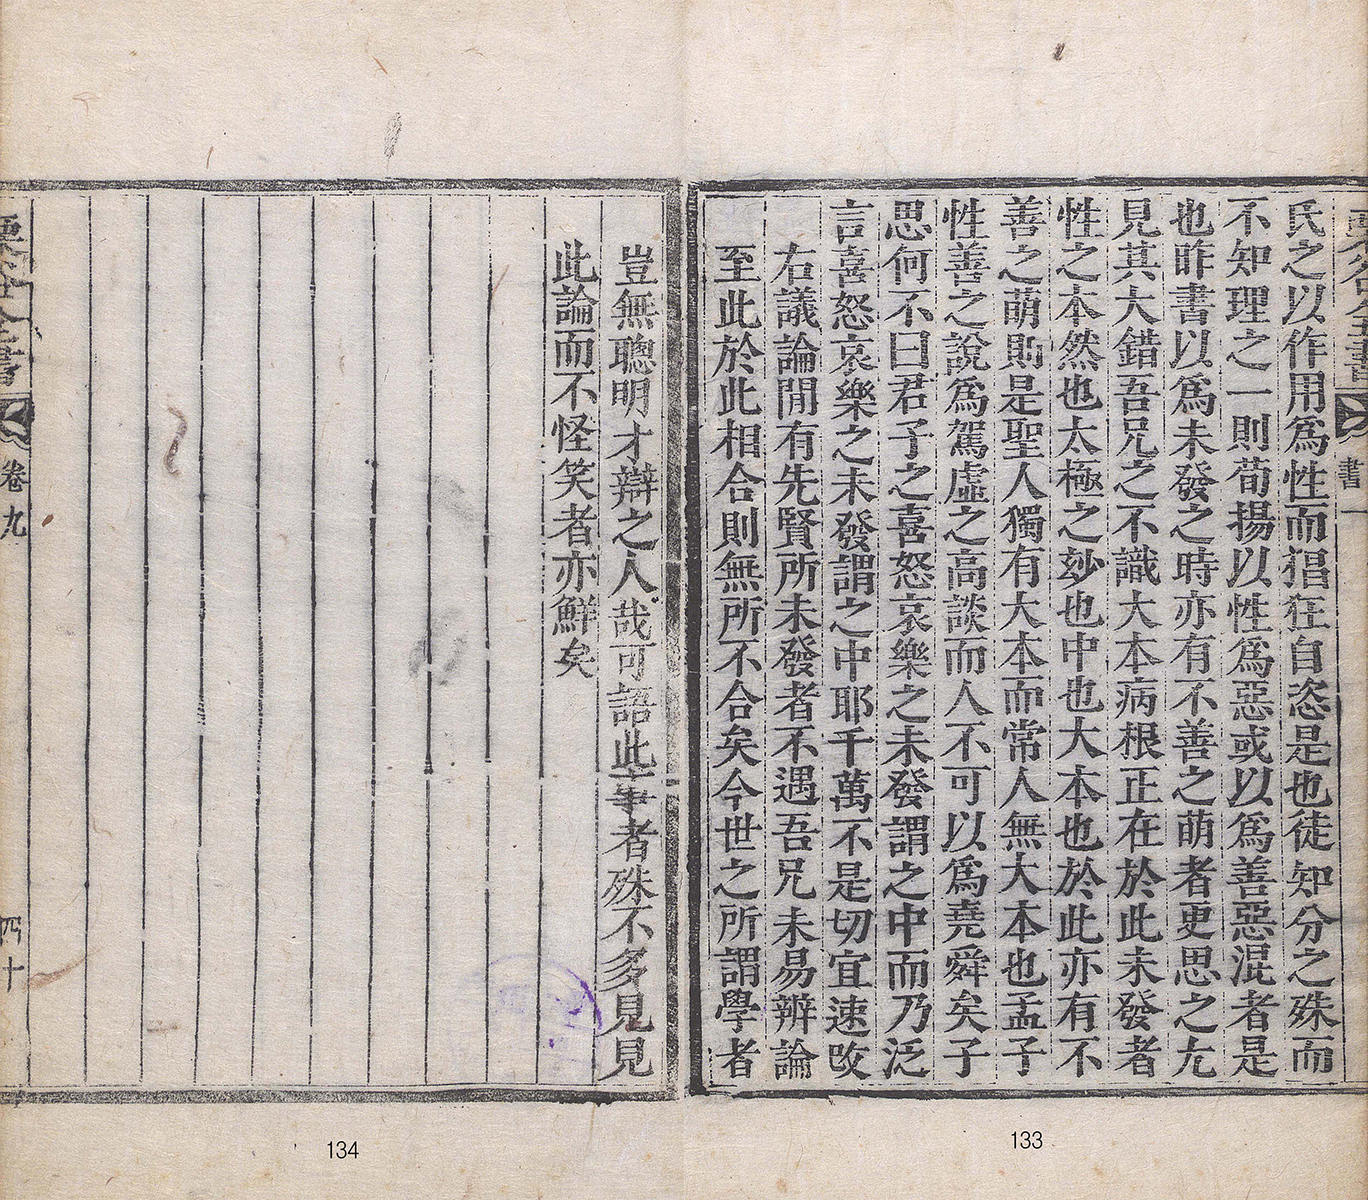 栗谷全書
書一
氏之以作用爲性而猖狂自恣是也徒知分之殊而
不知理之一則荀揚以性爲惡或以爲善惡混者是
也昨書以爲未發之時亦有不善之萌者更思之尤
見其大錯吾兄之不識大本病根正在於此未發者
性之本然也太極之妙也中也大本也於此亦有不
善之萌則是聖人獨有大本而常人無大本也孟子
性善之說爲駕虛之高談而人不可以爲堯舜矣子
思何不曰君子之喜怒哀樂之未發謂之中而乃泛
言喜怒哀樂之未發謂之中耶千萬不是切宜速改
右議論閒有先賢所未發者不遇吾兄未易辨論
至此於此相合則無所不合矣今世之所謂學者
133
豈無聰明才辯之人哉可語此事者殊不多見見
此論而不怪笑者亦鮮矣
栗谷全書
卷九
四十
134